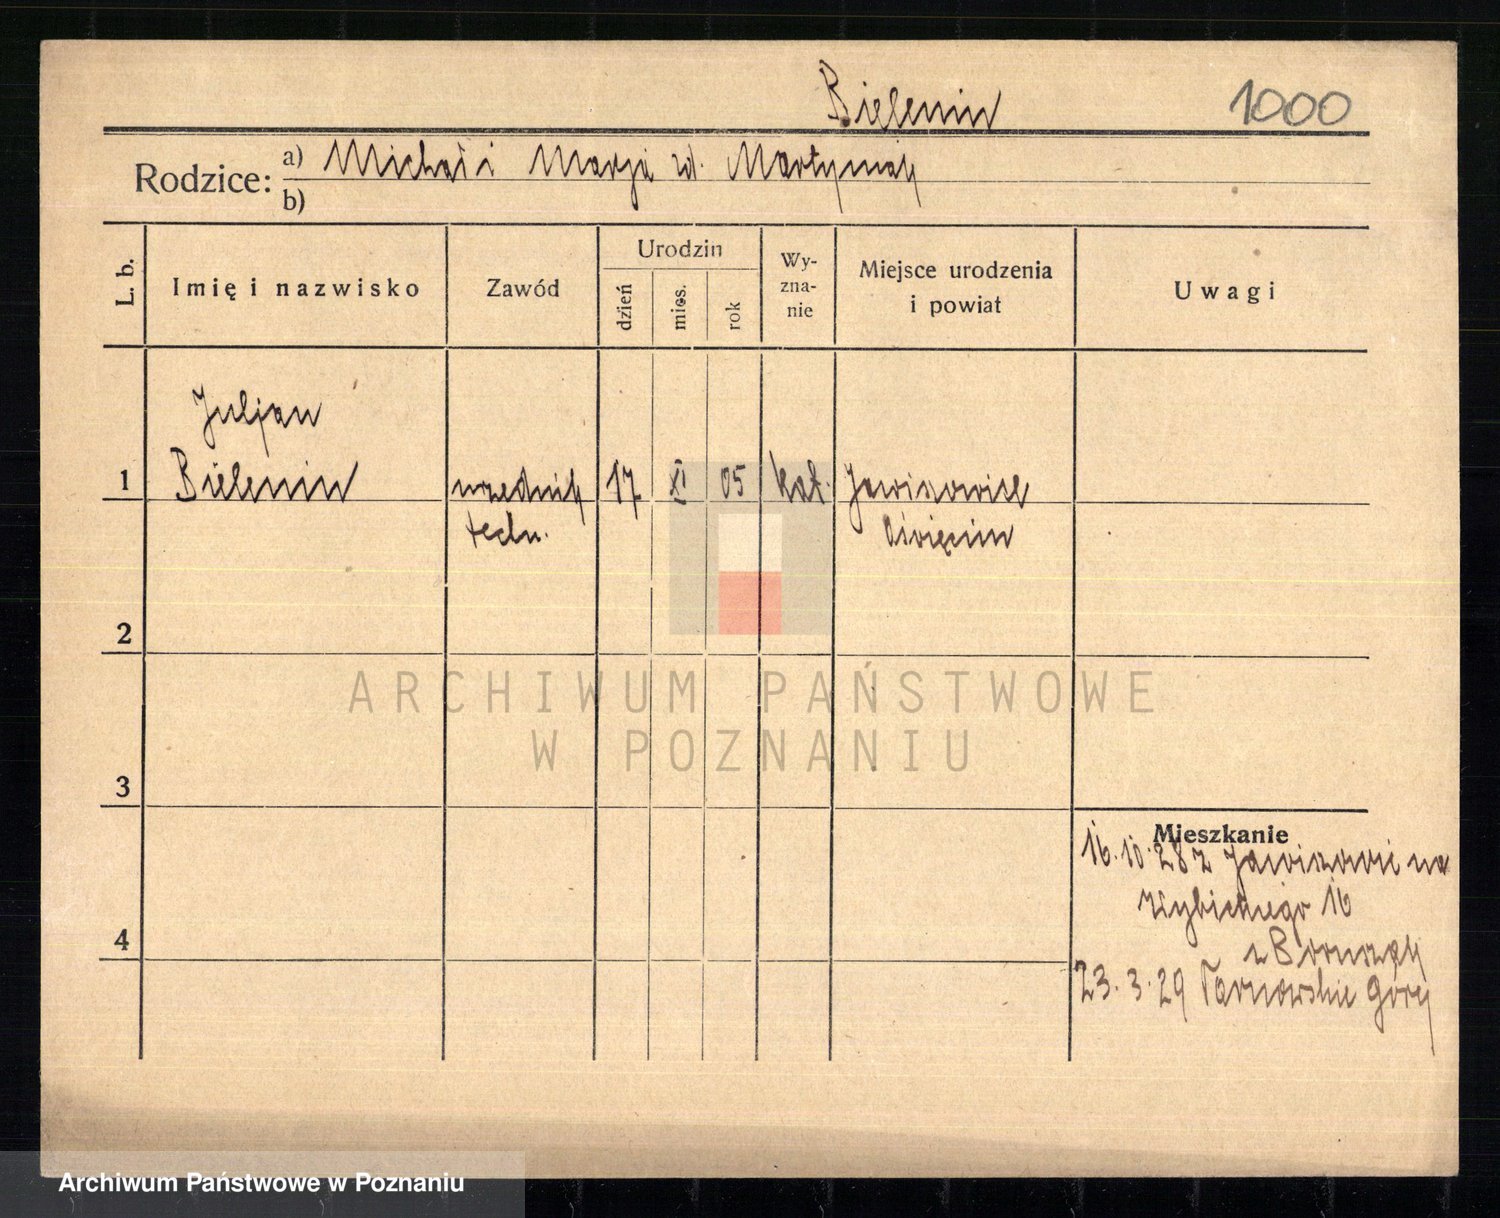 Bielenin 1000
Rodzice: a) Michał i Marja zd. Martyniak
b)
L. b. Imię i nazwisko Zawód Urodzin dzień mies. rok Wyzna- nie Miejsce urodzenia i powiat Uwagi
Juljan
1 Bielenin urzednik 17 XI 05 kat. Jawiszowice
techn. Oświęcim
2
3
4
Mieszkanie
16.10.28 z Jawiszowic na
16
z
23.3.29 Tarnowskie Góry
ARCHIWUM PAŃSTWOWE
W POZNANIU
Archiwum Państwowe w Poznaniu